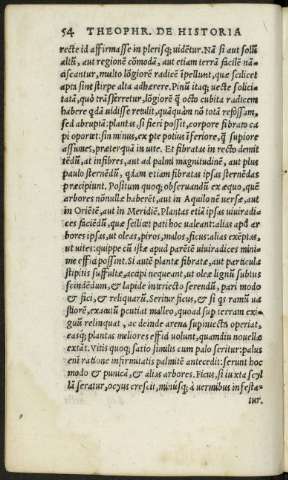 54 THEOPHR. DE HISTORIA
recte id affirmasse in plerisq; uidêtur. Nã si aut solũ
altũ, aut regionê cõmodã, aut etiam terrã facile nã-
ascantur, multo lõgiorê radicê ĩpellunt, quæ scilicet
apta sint stirpe alta adhærere. Pinũ itaq; uecte solici-
tatã, quò trãsferretur, lõgiorê q̃ octo cubita radicem
habere q̃dã uidisse retulit, quãquàm nõ totã refossam,
sed abruptã: plantas, si fieri possit, corpore fibrato ca
pi oportet: sin minus, ex pte potius ĩferiore, q̃ supiore
assumes, præterquã in uite. Et fibratas in recto demit
têdũ, at infibres, aut ad palmi magnitudinê, aut plus
paulo sternêdũ, qdam etiam fibratas ipsas sternêdas
præcipiunt. Positum quoq; obseruandũ ex æquo, quê
arbores nõnullæ haberêt, aut in Aquilonê uersæ, aut
in Oriêtê, aut in Meridiê. Plantas etiã ipsas uiuiradi-
ces faciêdũ, quæ scilicet pati hoc ualeant: alias apd ar
bores ipsas, ut oleas, piros, malos, ficus: alias exêptas,
ut uites: quippe cũ istæ apud parêtê uiuiradices mini-
me effici possint. Si autê plantæ fibratæ, aut particula
stipitis suffultæ, accipi nequeant, ut oleæ lignũ subtus
scindêdum, & lapide iniecto serendũ, pari modo
& fici, & reliquarũ. Seritur ficus, & si qs ramũ ua
stiorê, exacutũ pcutiat malleo, quoad sup terram exi-
guũ relinquat, ac deinde arena supiniectã operiat,
easq; plantas meliores effici uolunt, quamdiu nouellæ
extãt. Vitis quoq; satio similis cum palo seritur: palus
enĩ ratione infirmitatis palmitê antecedit: serunt hoc
modo & punicã, & alias arbores. Ficus, si iuxta scyl
lã seratur, ocyus crescit, minusq; à uermibus infesta-
tur.